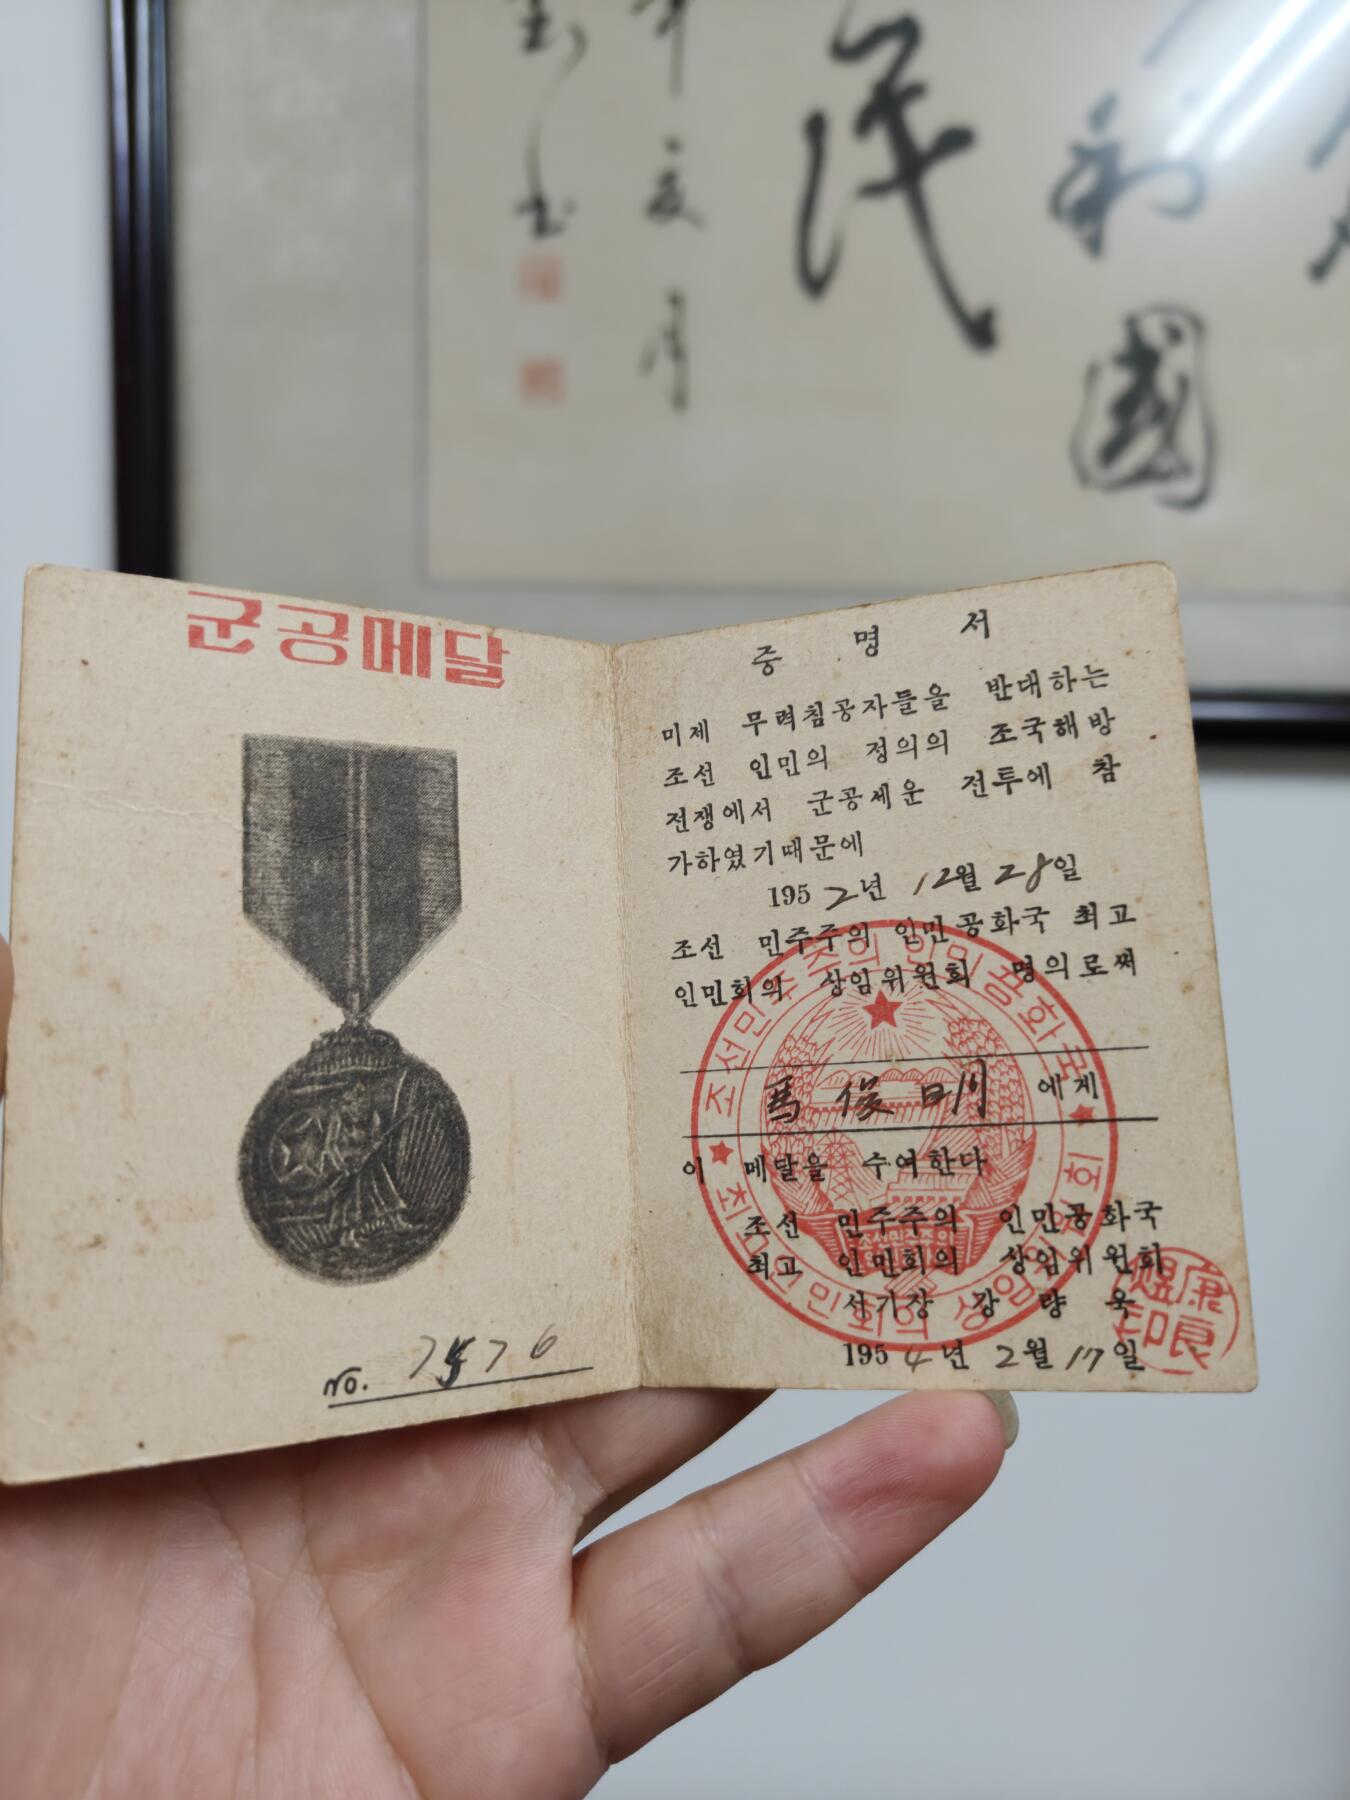 民
利
國
군공메달
No. 7576
증 명 서
미제 무력침공자들을 반대하는
조선 인민의 정의의 조국해방
전쟁에서 군공세운 전투에 참
가하였기때문에
1952년 12월 28일
조선 민주주의 인민공화국 최고
인민회의 상임위원회 명의로써
馬俊明 에게
이 메달을 수여한다
조선 민주주의 인민공화국
최고 인민회의 상임위원회
서기장 강 량 욱
1954년 2월 17일
조선민주주의인민공화국
최고인민회의 상임위원회
康良煜印